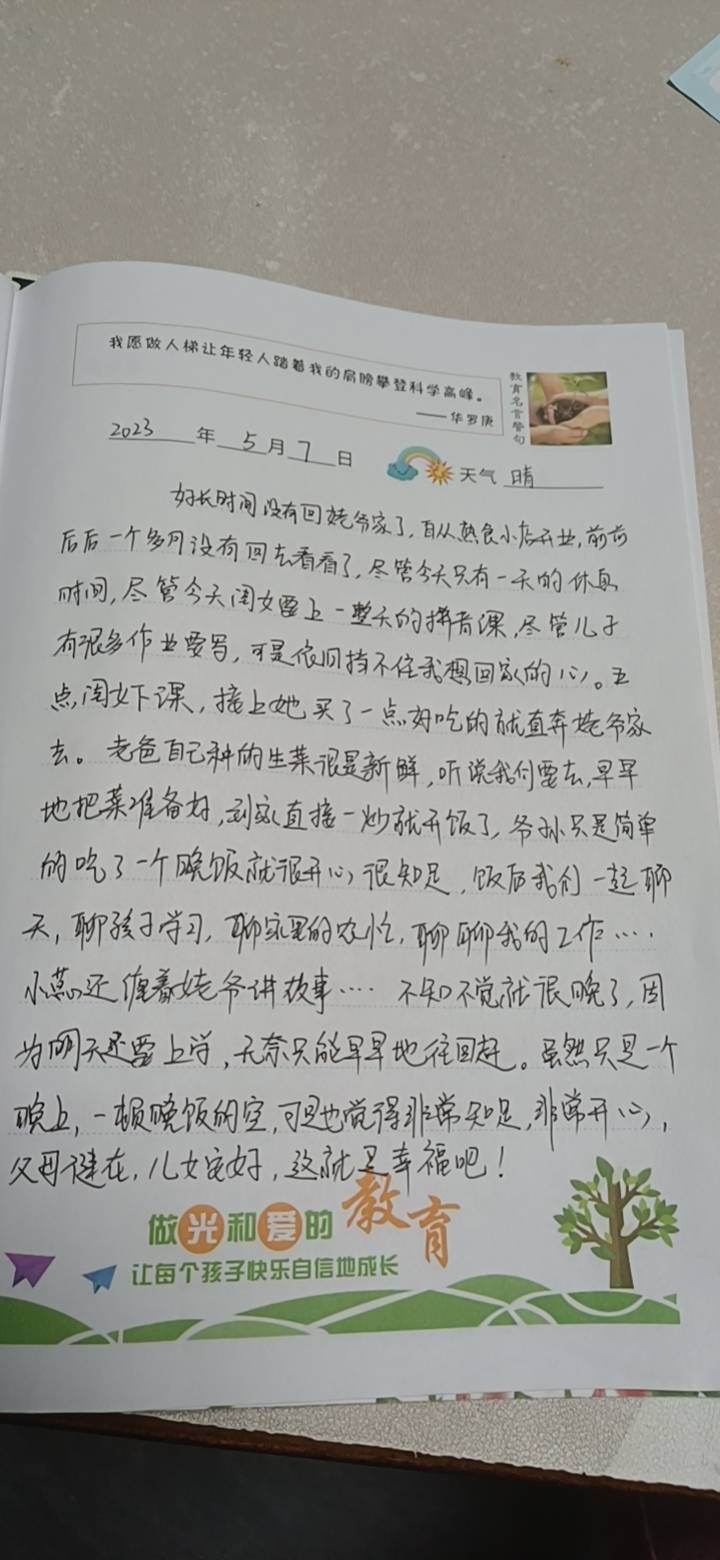 我愿做人梯让年轻人踏着我的肩膀攀登科学高峰。
——华罗庚
教育名言警句
2023年5月7日
天气 晴
好长时间没有回姥爷家了,自从熟食小店开业,前前
后后一个多月没有回去看看了,尽管今天只有一天的休息
时间,尽管今天闺女要上一整天的拼音课,尽管儿子
有很多作业要写,可是依旧挡不住我想回家的心。五
点闺女下课,接上她买了一点好吃的就直奔姥爷家
去。老爸自己种的生菜很是新鲜,听说我们要去,早早
地把菜准备好,到家直接一炒就开饭了,爷孙只是简单
的吃了一个晚饭就很开心很知足,饭后我们一起聊
天,聊孩子学习,聊家里的农忙,聊聊我的工作….
小蕊还缠着姥爷讲故事…. 不知不觉就很晚了,因
为明天还要上学,无奈只能早早地往回赶。虽然只是一个
晚上,一顿晚饭的空,可是也觉得非常知足,非常开心,
父母健在,儿女安好,这就是幸福吧!
做光和爱的教育
让每个孩子快乐自信地成长